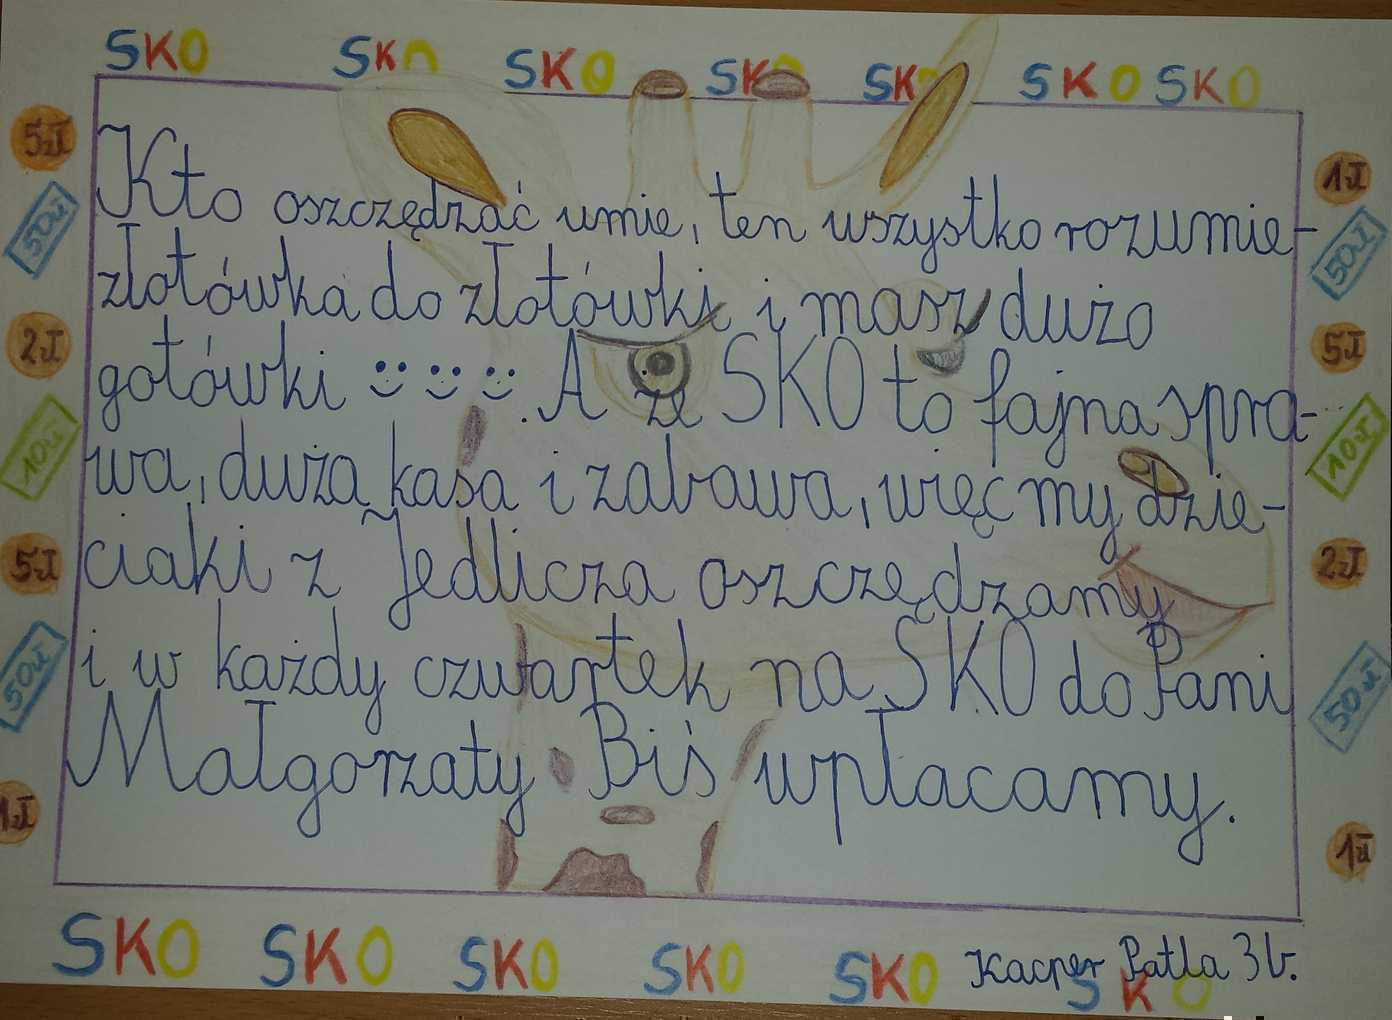 SKO SKO SKO SKO SKO SKO SKO
5zł 1zł
50zł 50zł
2zł 5zł
10zł 10zł
5zł 2zł
50zł 50zł
1zł 1zł
Kto oszczędzać umie, ten wszystko rozumie-
złotówka do złotówki i masz dużo
gotówki . A że SKO to fajna spra-
wa, duża kasa i zabawa, więc my dzie-
ciaki z Jedlicza oszczędzamy
i w każdy czwartek na SKO do Pani
Małgorzaty Biś wpłacamy.
SKO SKO SKO SKO SKO SKO
Kacper Patla 3b.